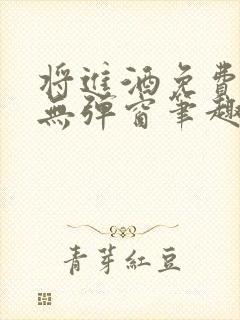 将進酒免費
無彈窗筆趣
青芽紅豆